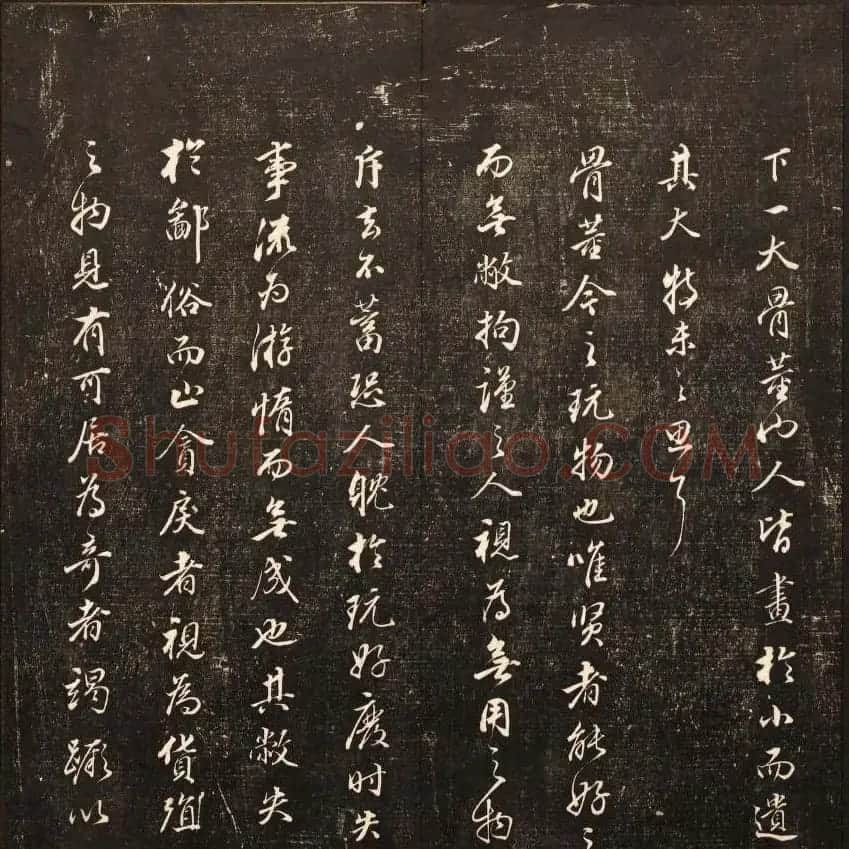 下一大骨董也人皆畫於小而遺
其大特未之思耳
骨董今之玩物也唯賢者能好之
而無敝拘謹之人視為無用之物
斥去不蓄恐人耽於玩好廢時失
事流為游惰而無成也其敝失
於鄙俗而止貪戾者視為貨殖
之物見有可居為奇者竭蹶以
Shufaziliao.COM